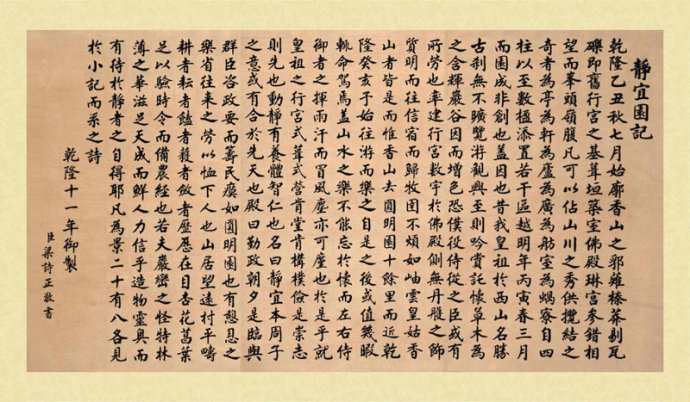 靜宜園記
乾隆乙丑秋七月始廓香山之郛薙榛莽剔瓦
礫即舊行宮之基葺垣築室佛殿琳宮參錯相
望而峯頭嶺腹凡可以佔山川之秀供攬結之
奇者為亭為軒為廬為廣為舫室為蝸寮自四
柱以至數楹添置若干區越明年丙寅春三月
而園成非創也蓋因也昔我皇祖於西山名勝
古刹無不曠覽游觀興至則吟賞託懷草木為
之含輝巖谷因而增色恐僕役侍從之臣或有
所勞也率建行宮數宇於佛殿側無丹雘之飾
質明而往信宿而歸牧圉不煩如岫雲皇姑香
山者皆是而惟香山去圓明園十餘里而近乾
隆癸亥予始往游而樂之自是之後或值幾暇
輒命駕焉蓋山水之樂不能忘於懷而左右侍
御者之揮雨汗而冒風塵亦可廑也於是乎就
皇祖之行宮式葺式營肯堂肯構樸儉是崇志
則先也動靜有養體智仁也名曰靜宜本周子
之意或有合於先天也殿曰勤政朝夕是臨與
群臣咨政要而籌民瘼如圓明園也有憩息之
樂省往來之勞以恤下人也山居望遠村平疇
耕者耘者饁者穫者斂者歷歷在目杏花菖葉
足以驗時令而備農經也若夫巖巒之怪特林
薄之華滋足天成而鮮人力信乎造物靈奧而
有待於靜者之自得耶凡為景二十有八各見
於小記而系之詩
乾隆十一年御製
臣梁詩正敬書